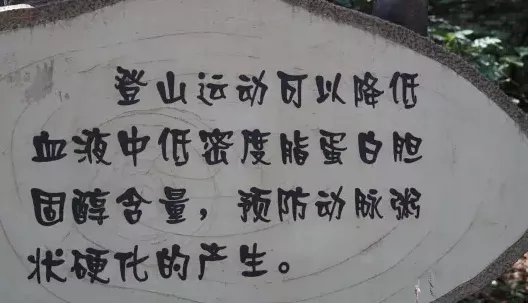 登山运动可以降低
血液中低密度脂蛋白胆
固醇含量，预防动脉粥
状硬化的产生。